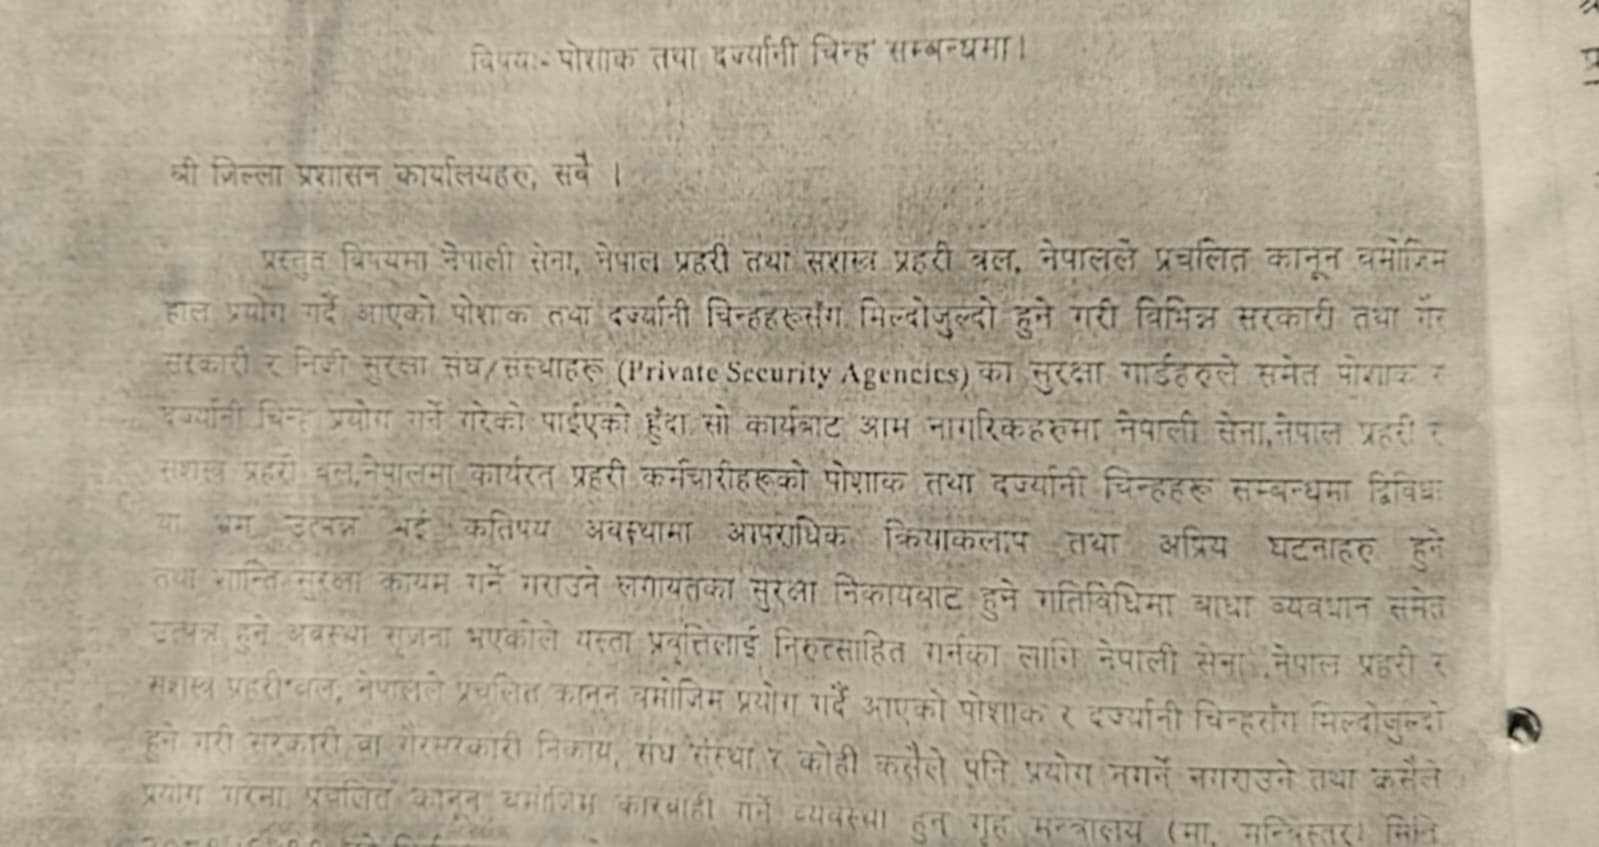 विषयः- पोशाक तथा दर्ज्यानी चिन्ह सम्बन्धमा।
श्री जिल्ला प्रशासन कार्यालयहरु, सबै ।
प्रस्तुत विषयमा नेपाली सेना, नेपाल प्रहरी तथा सशस्त्र प्रहरी बल, नेपालले प्रचलित कानून बमोजिम
हाल प्रयोग गर्दै आएको पोशाक तथा दर्ज्यानी चिन्हहरूसँग मिल्दोजुल्दो हुने गरी विभिन्न सरकारी तथा गैर
सरकारी र निजी सुरक्षा संघ/संस्थाहरू (Private Security Agencies) का सुरक्षा गार्डहरुले समेत पोशाक र
दर्ज्यानी चिन्ह प्रयोग गर्ने गरेको पाईएको हुँदा सो कार्यबाट आम नागरिकहरुमा नेपाली सेना,नेपाल प्रहरी र
सशस्त्र प्रहरी बल,नेपालमा कार्यरत प्रहरी कर्मचारीहरूको पोशाक तथा दर्ज्यानी चिन्हहरू सम्बन्धमा द्विविधा
वा भ्रम उत्पन्न भई कतिपय अवस्थामा आपराधिक क्रियाकलाप तथा अप्रिय घटनाहरु हुने
तथा शान्ति सुरक्षा कायम गर्ने गराउने लगायतका सुरक्षा निकायबाट हुने गतिविधिमा बाधा व्यवधान समेत
उत्पन्न हुने अवस्था सृजना भएकोले यस्ता प्रवृत्तिलाई निरुत्साहित गर्नका लागि नेपाली सेना ,नेपाल प्रहरी र
सशस्त्र प्रहरी बल, नेपालले प्रचलित कानून बमोजिम प्रयोग गर्दै आएको पोशाक र दर्ज्यानी चिन्हसँग मिल्दोजुल्दो
हुने गरी सरकारी वा गैरसरकारी निकाय, संघ संस्था र कोही कसैले पनि प्रयोग नगर्ने नगराउने तथा कसैले
प्रयोग गरेमा प्रचलित कानून बमोजिम कारबाही गर्ने व्यवस्था हुन गृह मन्त्रालय (मा. मन्त्रिस्तर) मिति